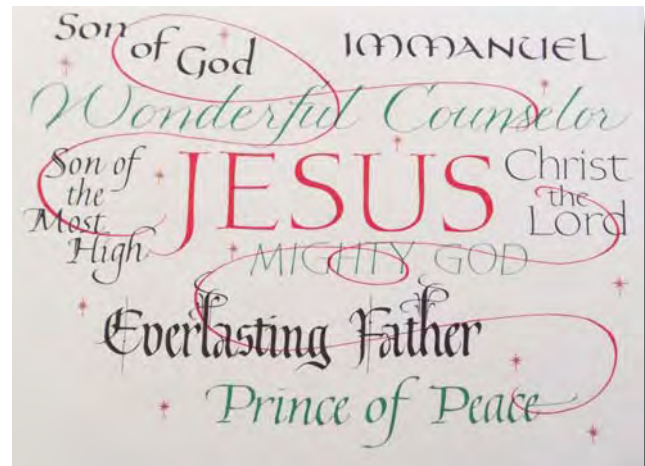 Son
of God
IMMANUEL
Wonderful Counselor
Son of
the
Most
High
JESUS
Christ
the
Lord
MIGHTY GOD
Everlasting Father
Prince of Peace